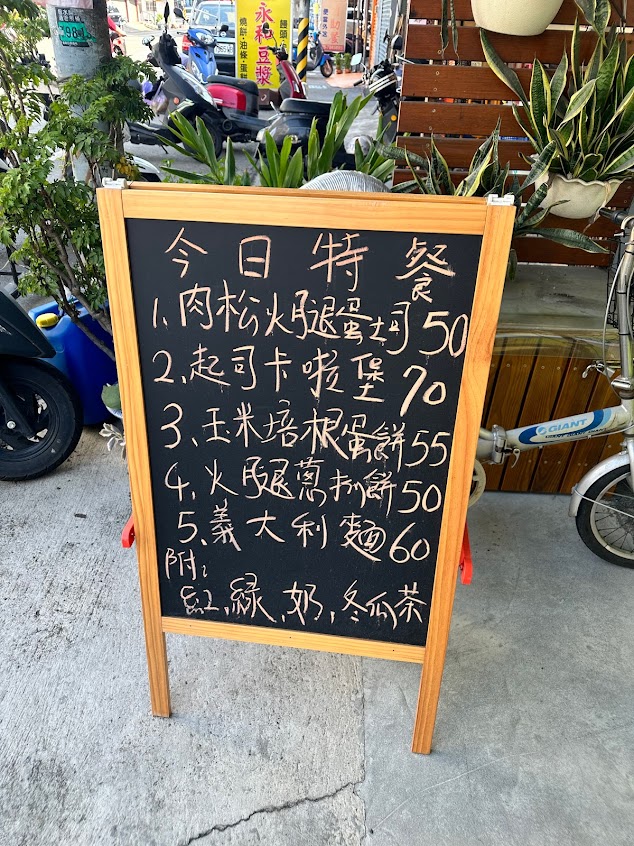 永和豆漿
燒餅·油條·蛋餅
饅頭
今日特餐
1. 肉松火腿蛋土司 50
2. 起司卡啦堡 70
3. 玉米培根蛋餅 55
4. 火腿蔥抓餅 50
5. 義大利麵 60
附:
紅,綠,奶,冬瓜茶
GIANT